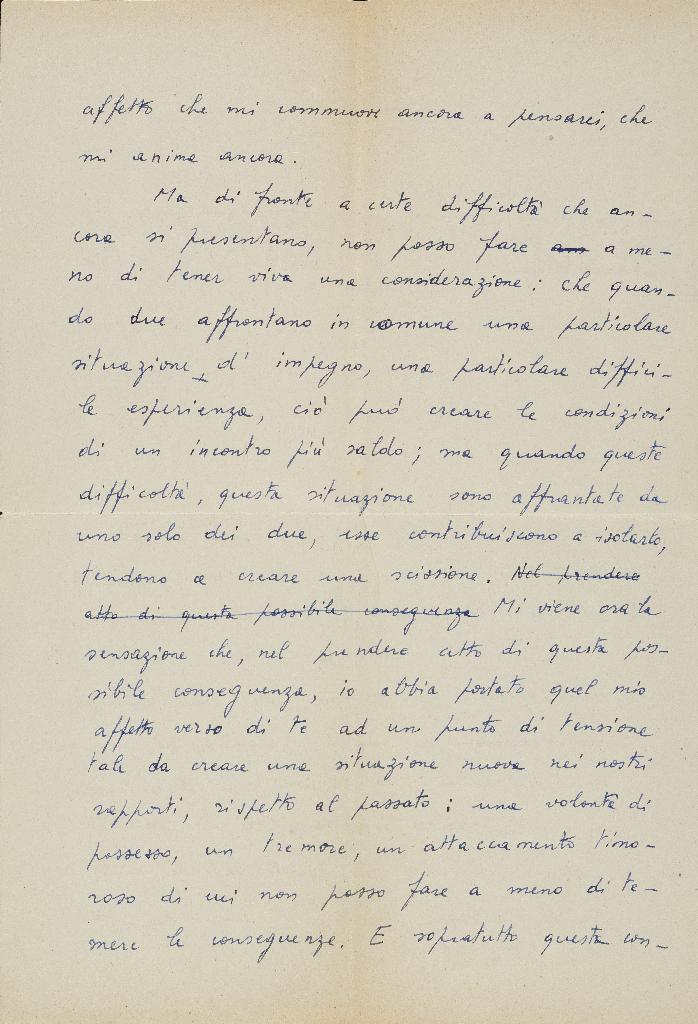 affetto che mi commuove ancora a pensarci, che
mi anima ancora.
Ma di fronte a certe difficoltà che an-
cora si presentano, non posso fare a me-
no di tener viva una considerazione: che quan-
do due affrontano in comune una particolare
situazione d'impegno, una particolare diffici-
le esperienza, ciò può creare le condizioni
di un incontro più saldo; ma quando queste
difficoltà, questa situazione sono affrontate da
uno solo dei due, esse contribuiscono a isolarlo,
tendono a creare una scissione. Nel prendere
atto di questa possibile conseguenza Mi viene ora la
sensazione che, nel prendere atto di questa pos-
sibile conseguenza, io abbia portato quel mio
affetto verso di te ad un punto di tensione
tale da creare una situazione nuova nei nostri
rapporti, rispetto al passato: una volontà di
possesso, un tremore, un attaccamento timo-
roso di cui non posso fare a meno di te-
mere le conseguenze. E sopratutto questa con-